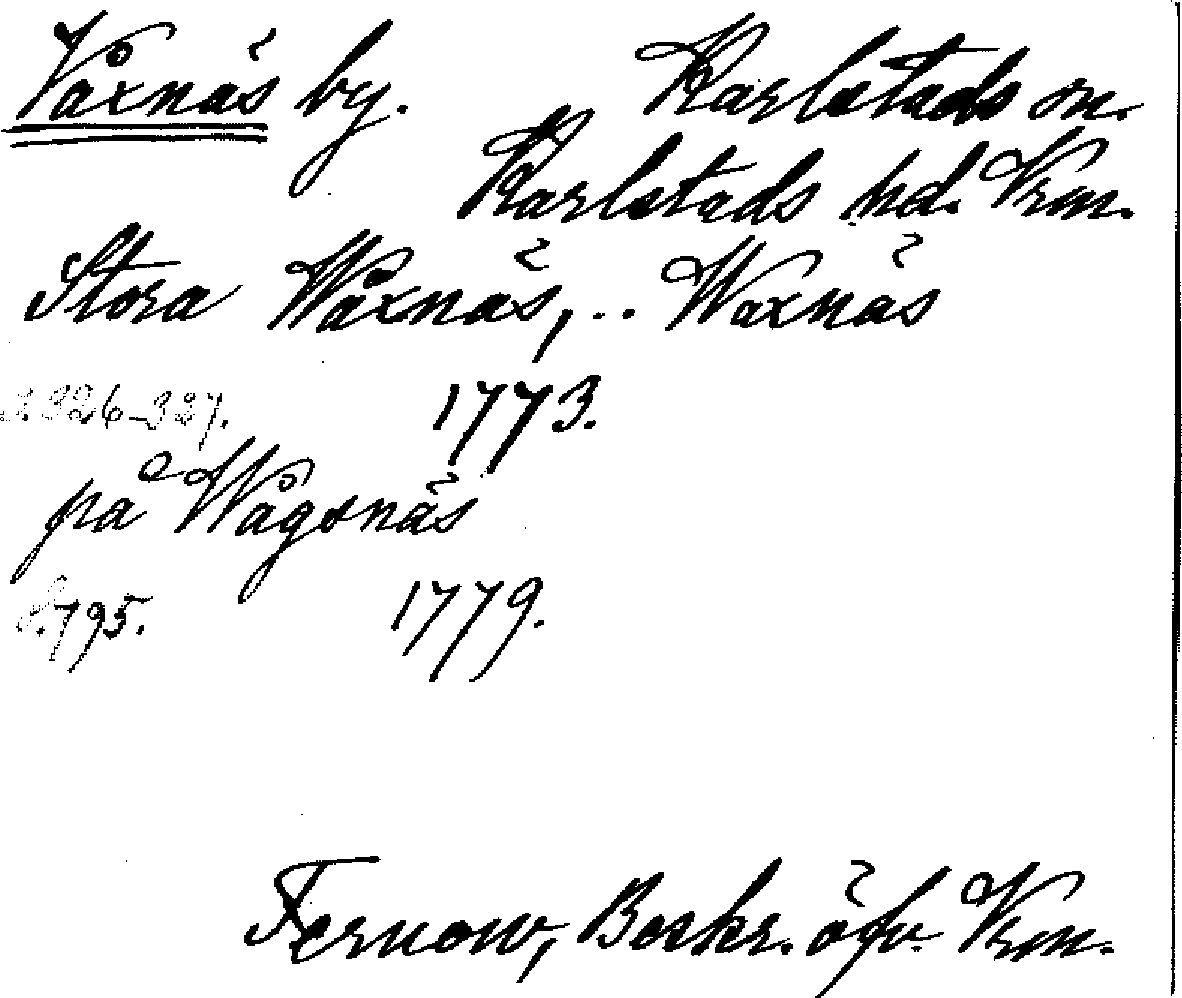 Våxnäs by. Karlstads sn.
Karlstads hd. Vrm.
Stora Wåxnäs, .. Waxnäs
s. 326-327. 1773.
på Wågsnäs
S. 795. 1779.
Fernow, Beskr. öfv. Vrm.